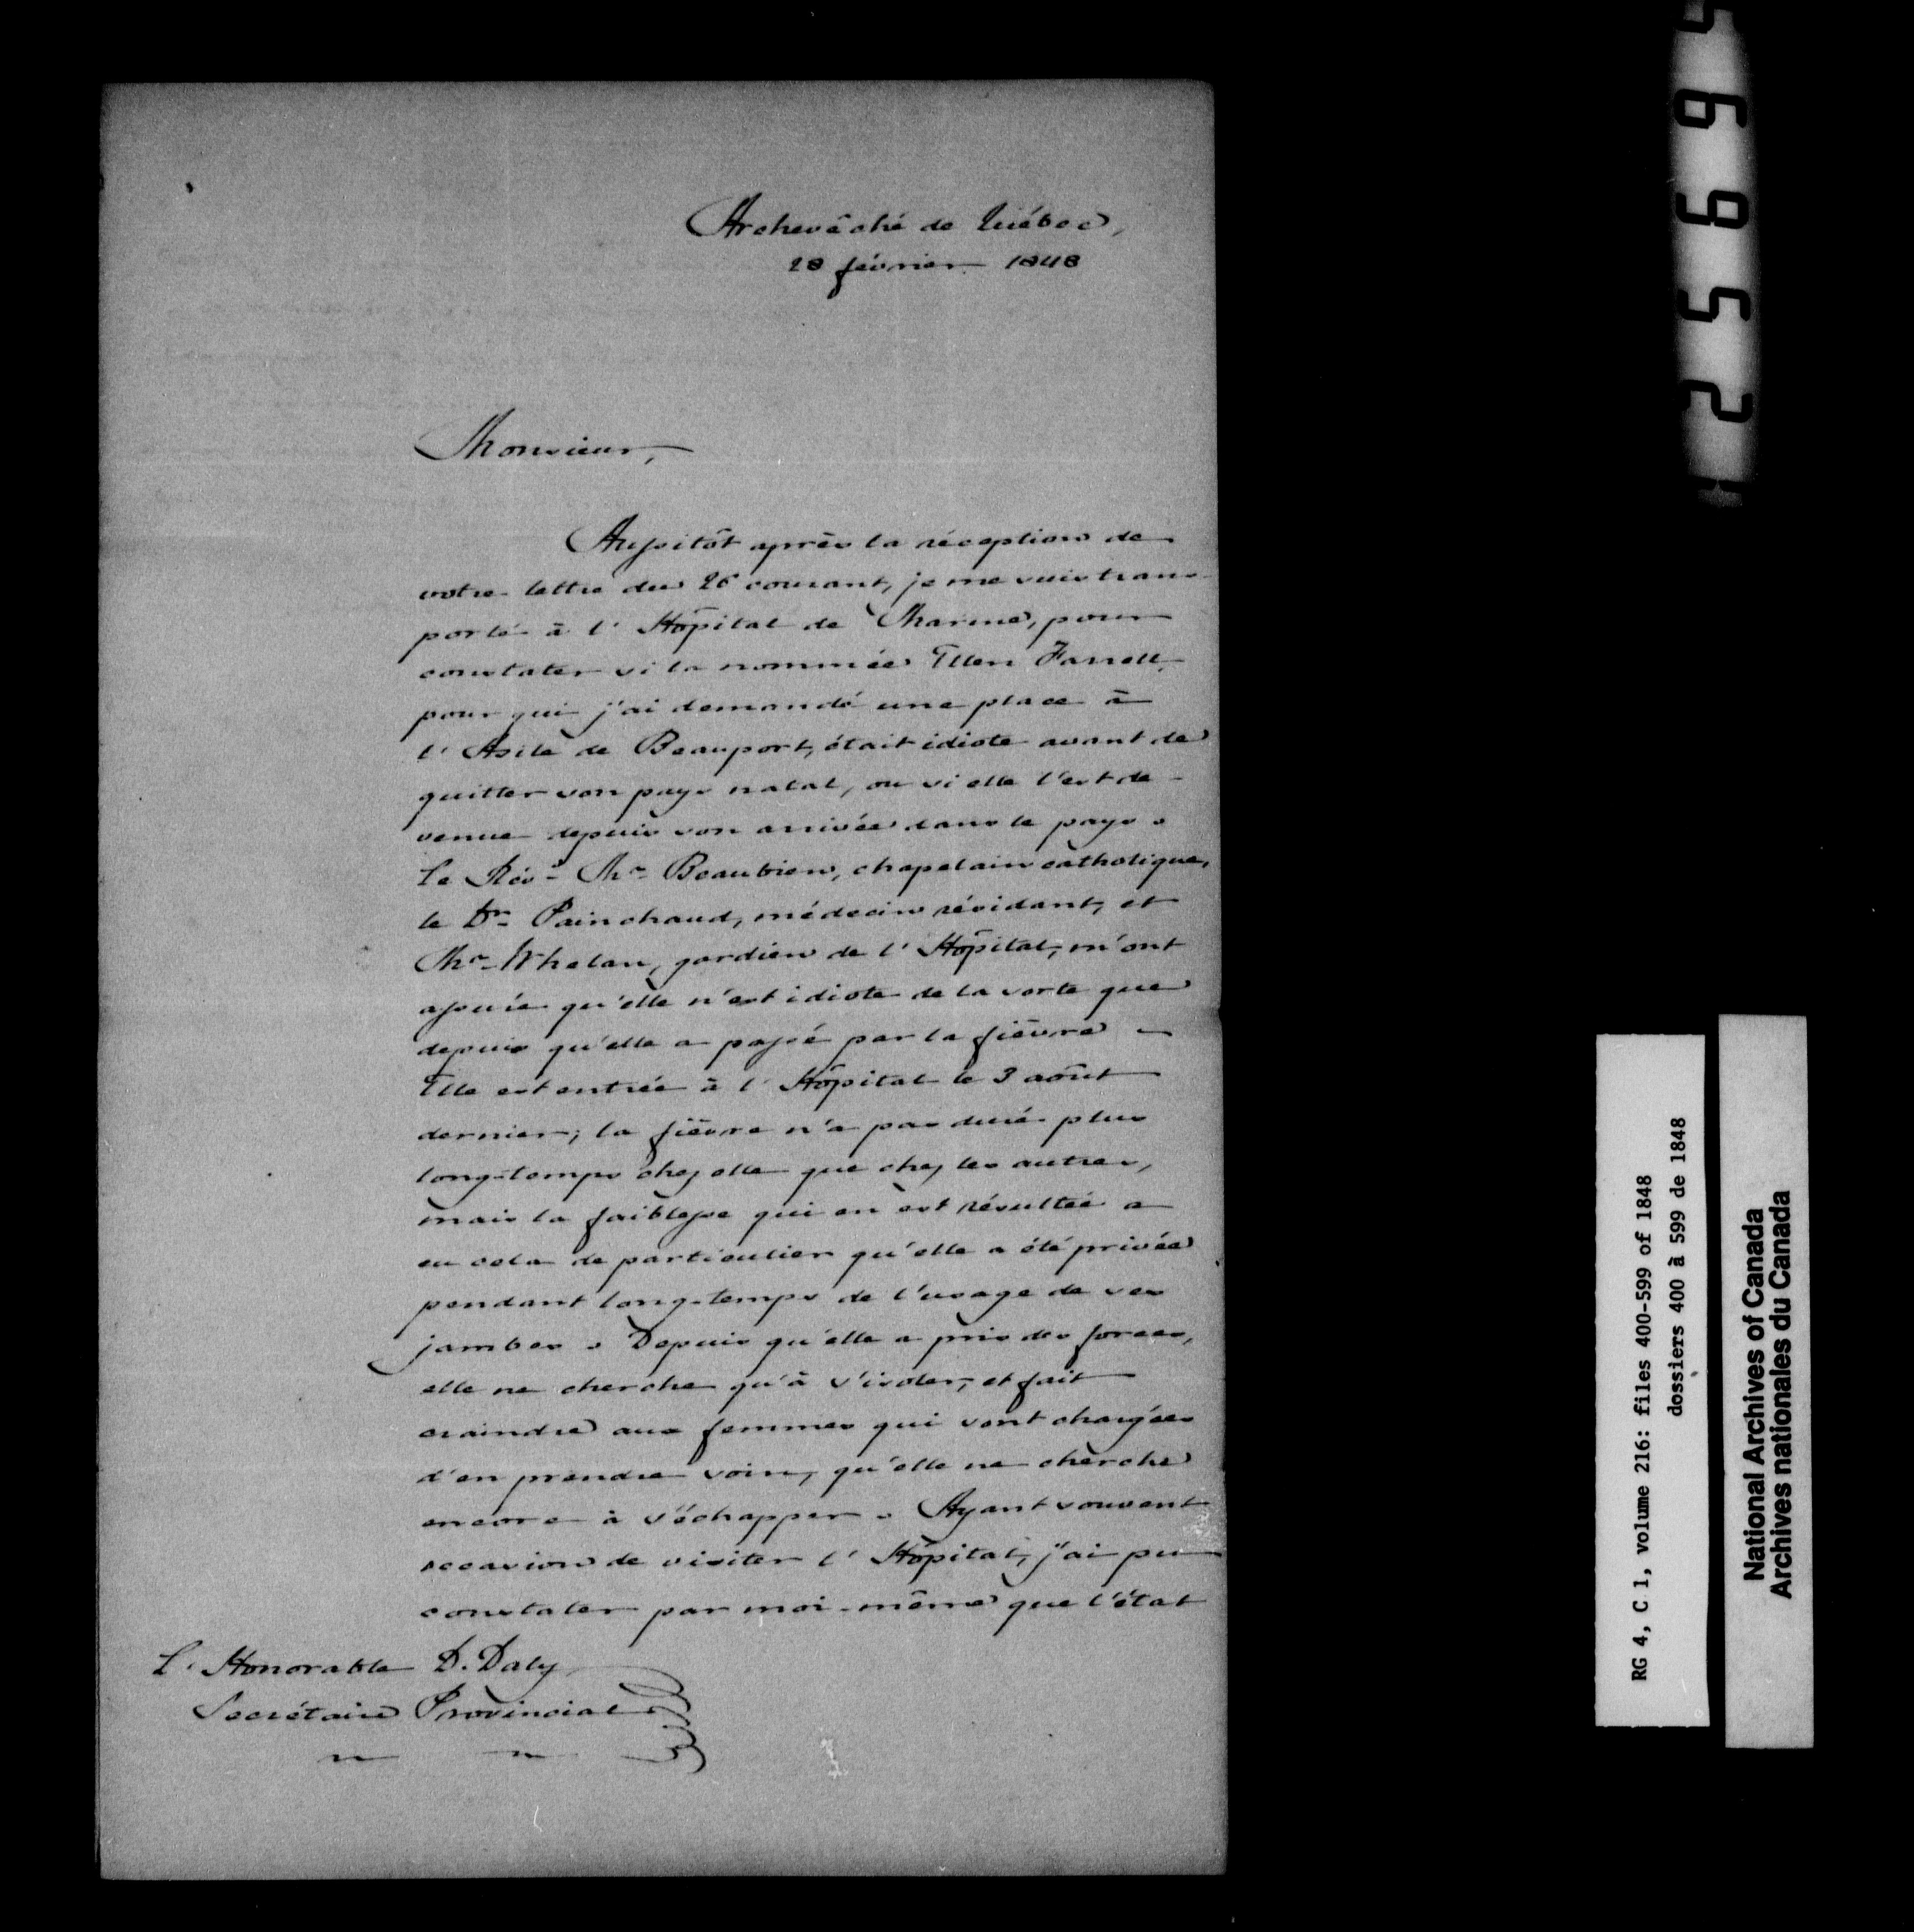 Archevêché de Québec,
28 février 1848
Monsieur,
Aussitôt après la réception de
votre lettre du 26 courant, je me suis trans-
porté à l'Hôpital de Marine, pour
constater si la nommée Ellen Farrell,
pour qui j'ai demandé une place à
l'Asile de Beauport, était idiote avant de
quitter son pays natal, ou si elle l'est de-
venue depuis son arrivée dans le pays.
Le Rév. Mr. Beaubien, chapelain catholique,
le Dr. Painchaud, médecin résidant, et
Mr. Whelan, gardien de l'Hôpital, m'ont
assuré qu'elle n'est idiote de la sorte que
depuis qu'elle a passé par la fièvre -
Elle est entrée à l'Hôpital le 3 août
dernier; la fièvre n'a pas duré plus
long-temps chez elle que chez les autres,
mais la faiblesse qui en est résultée a
eu cela de particulier qu'elle a été privée
pendant long-temps de l'usage de ses
jambes. Depuis qu'elle a pris des forces,
elle ne cherche qu'à s'isoler, et fait
craindre aux femmes qui sont chargées
d'en prendre soin, qu'elle ne cherche
encore à s'échapper. Ayant souvent
occasion de visiter l'Hôpital, j'ai pu
constater par moi-même que l'état
L'Honorable D. Daly
Secrétaire Provincial
25695
RG 4, C 1, volume 216: files 400-599 of 1848
dossiers 400 à 599 de 1848
National Archives of Canada
Archives nationales du Canada